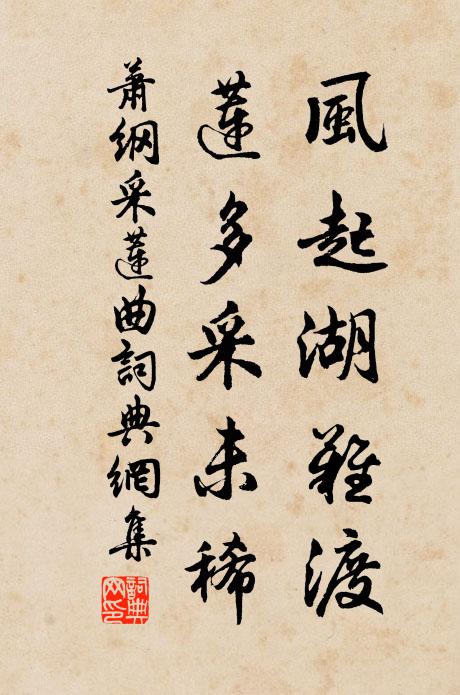 風起湖難渡
蓮多采未稀
蕭綱采蓮曲詞典網集
詞典
网印